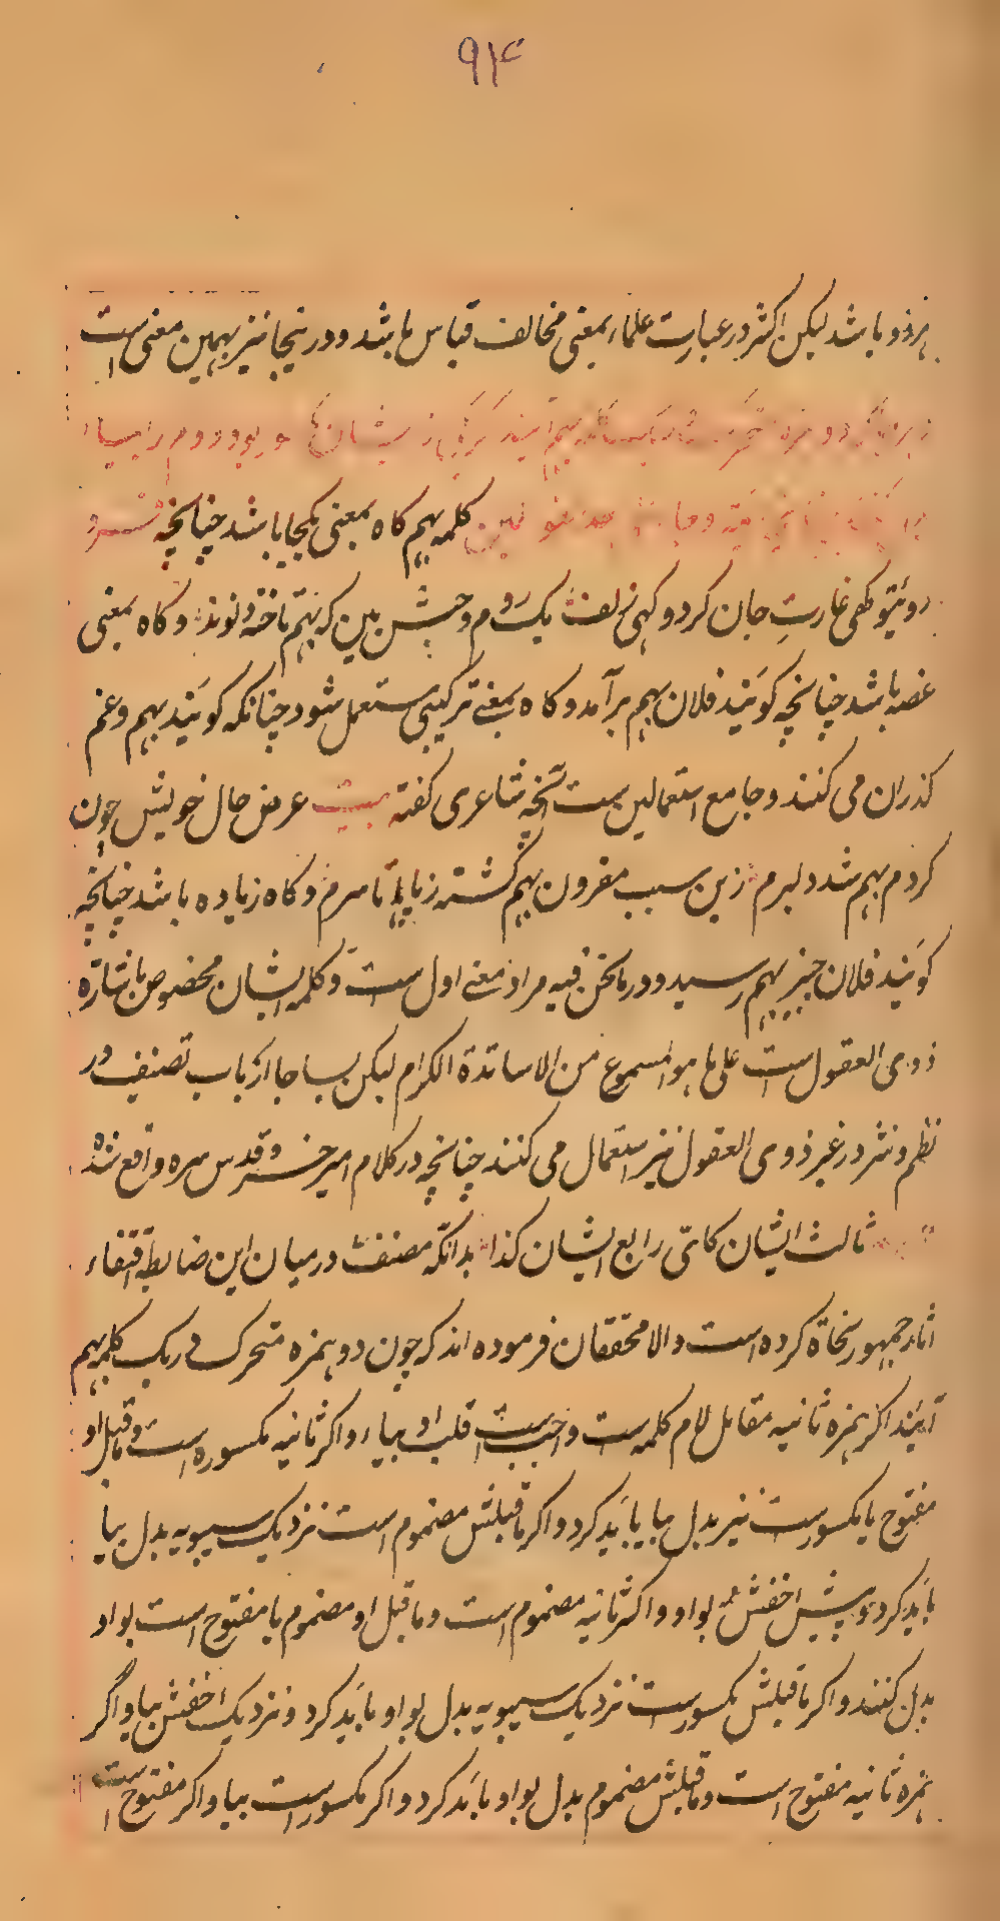 ۹۱۴
هر دو باشد لیکن اکثر در عبارت علماء بمعنی مخالف قیاس باشد و در ینجا نیز بهمین معنی است
دو همزه
کلمه بهم کاه بمعنی یکجا باشد چنانچه
غارت جان کرد و کهی زلف یک روم و حبش بین که بهم تاخته‌اند و کاه بمعنی
غصه باشد چنانچه کویند فلان بهم برآمد و کاه بمعنی ترکیبی مستعمل شود چنانکه کویند بهم و غم
کذران می کنند و جامع استعمالین ست آنچه شاعری کفته بیت عرض حال خویش چون
کردم بهم شد دلبرم زین سبب مقرون بهم کشته ز پا تا سرم و کاه زیاده باشد چنانچه
کویند فلان چیز بهم رسید و در ما نحن فیه مراد معنی اول ست و کلمه ایشان مخصوص باشاره
ذوی العقول ست علی ما هو المسموع من الاساتذة الکرام لیکن بسا جا ارباب تصنیف در
نظم و نثر در غیر ذوی العقول نیز استعمال می کنند چنانچه در کلام امیر خسرو قدس سره واقع شده
ثالث ایشان کاتی رابع ایشان کذا بدانکه مصنف در میان این ضابطه اقتفاء
آثار جمهور نحاة کرده است والا محققان فرموده اند که چون دو همزه متحرک در یک کلمه بهم
آیند اکر همزه ثانیه مقابل لام کلمه ست واجب ست قلب او بیاء و اکر ثانیه مکسوره است و ماقبل او
مفتوح یا مکسورست نیز بدل بیا باید کرد و اکر ماقبلش مضموم است نزدیک سیبویه بدل بیا
باید کرد و پیش اخفش بواو و اکر ثانیه مضموم است و ماقبل او مضموم یا مفتوح است بواو
بدل کنند و اکر ماقبلش مکسورست نزدیک سیبویه بدل بواو باید کرد و نزدیک اخفش بیا و اگر
همزه ثانیه مفتوح است و ماقبلش مضموم بدل بواو باید کرد و اکر مکسور است بیا و اکر مفتوح است